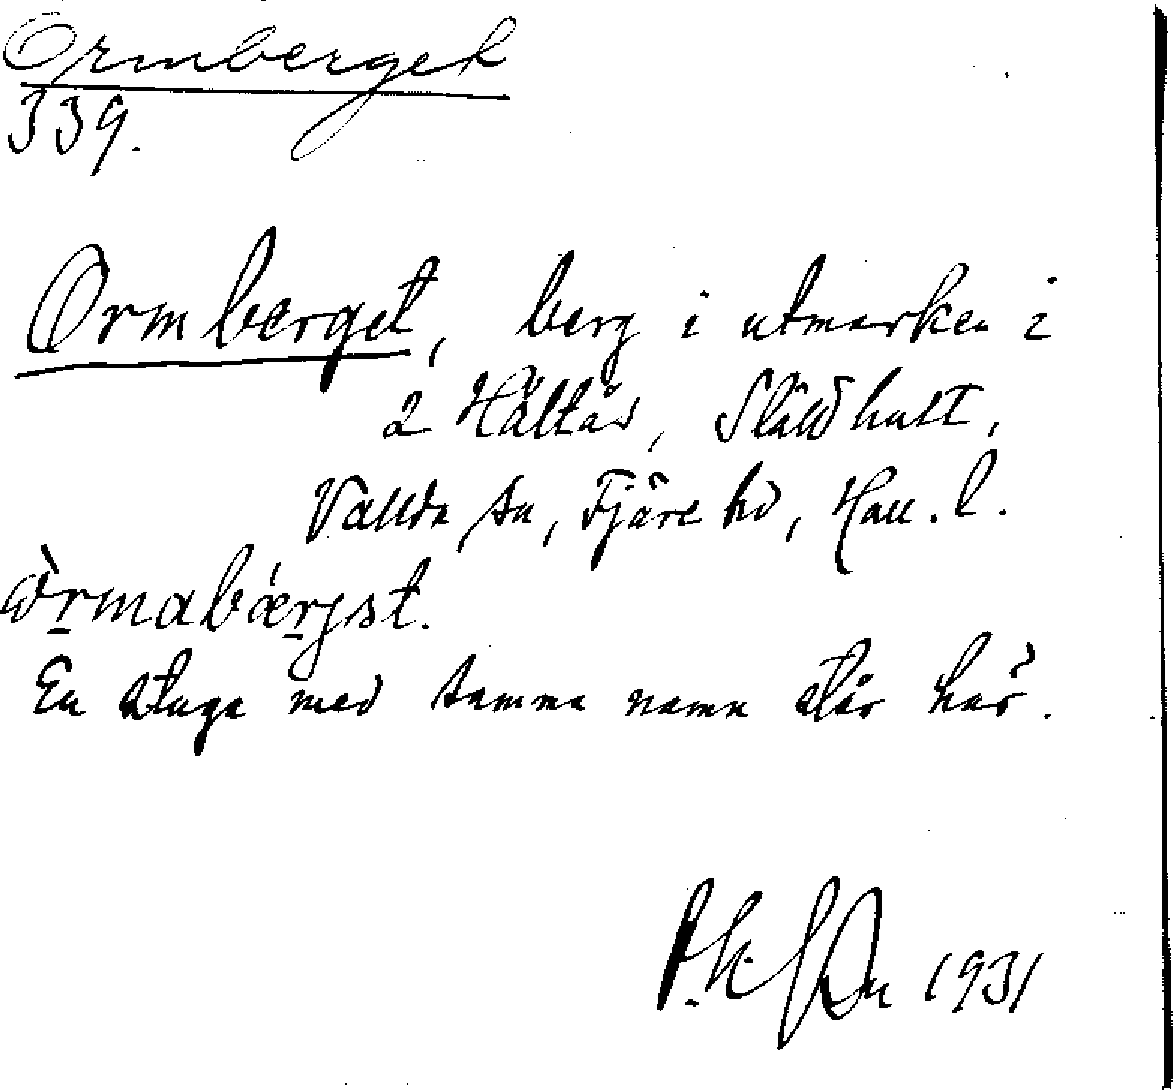 Ormberget
339.
Ormberget, berg i utmarken i
2 Hältås, Släödhult,
Vallda sn, Fjäre hd, Hall. l.
En stuga med samma namn står här.
1931